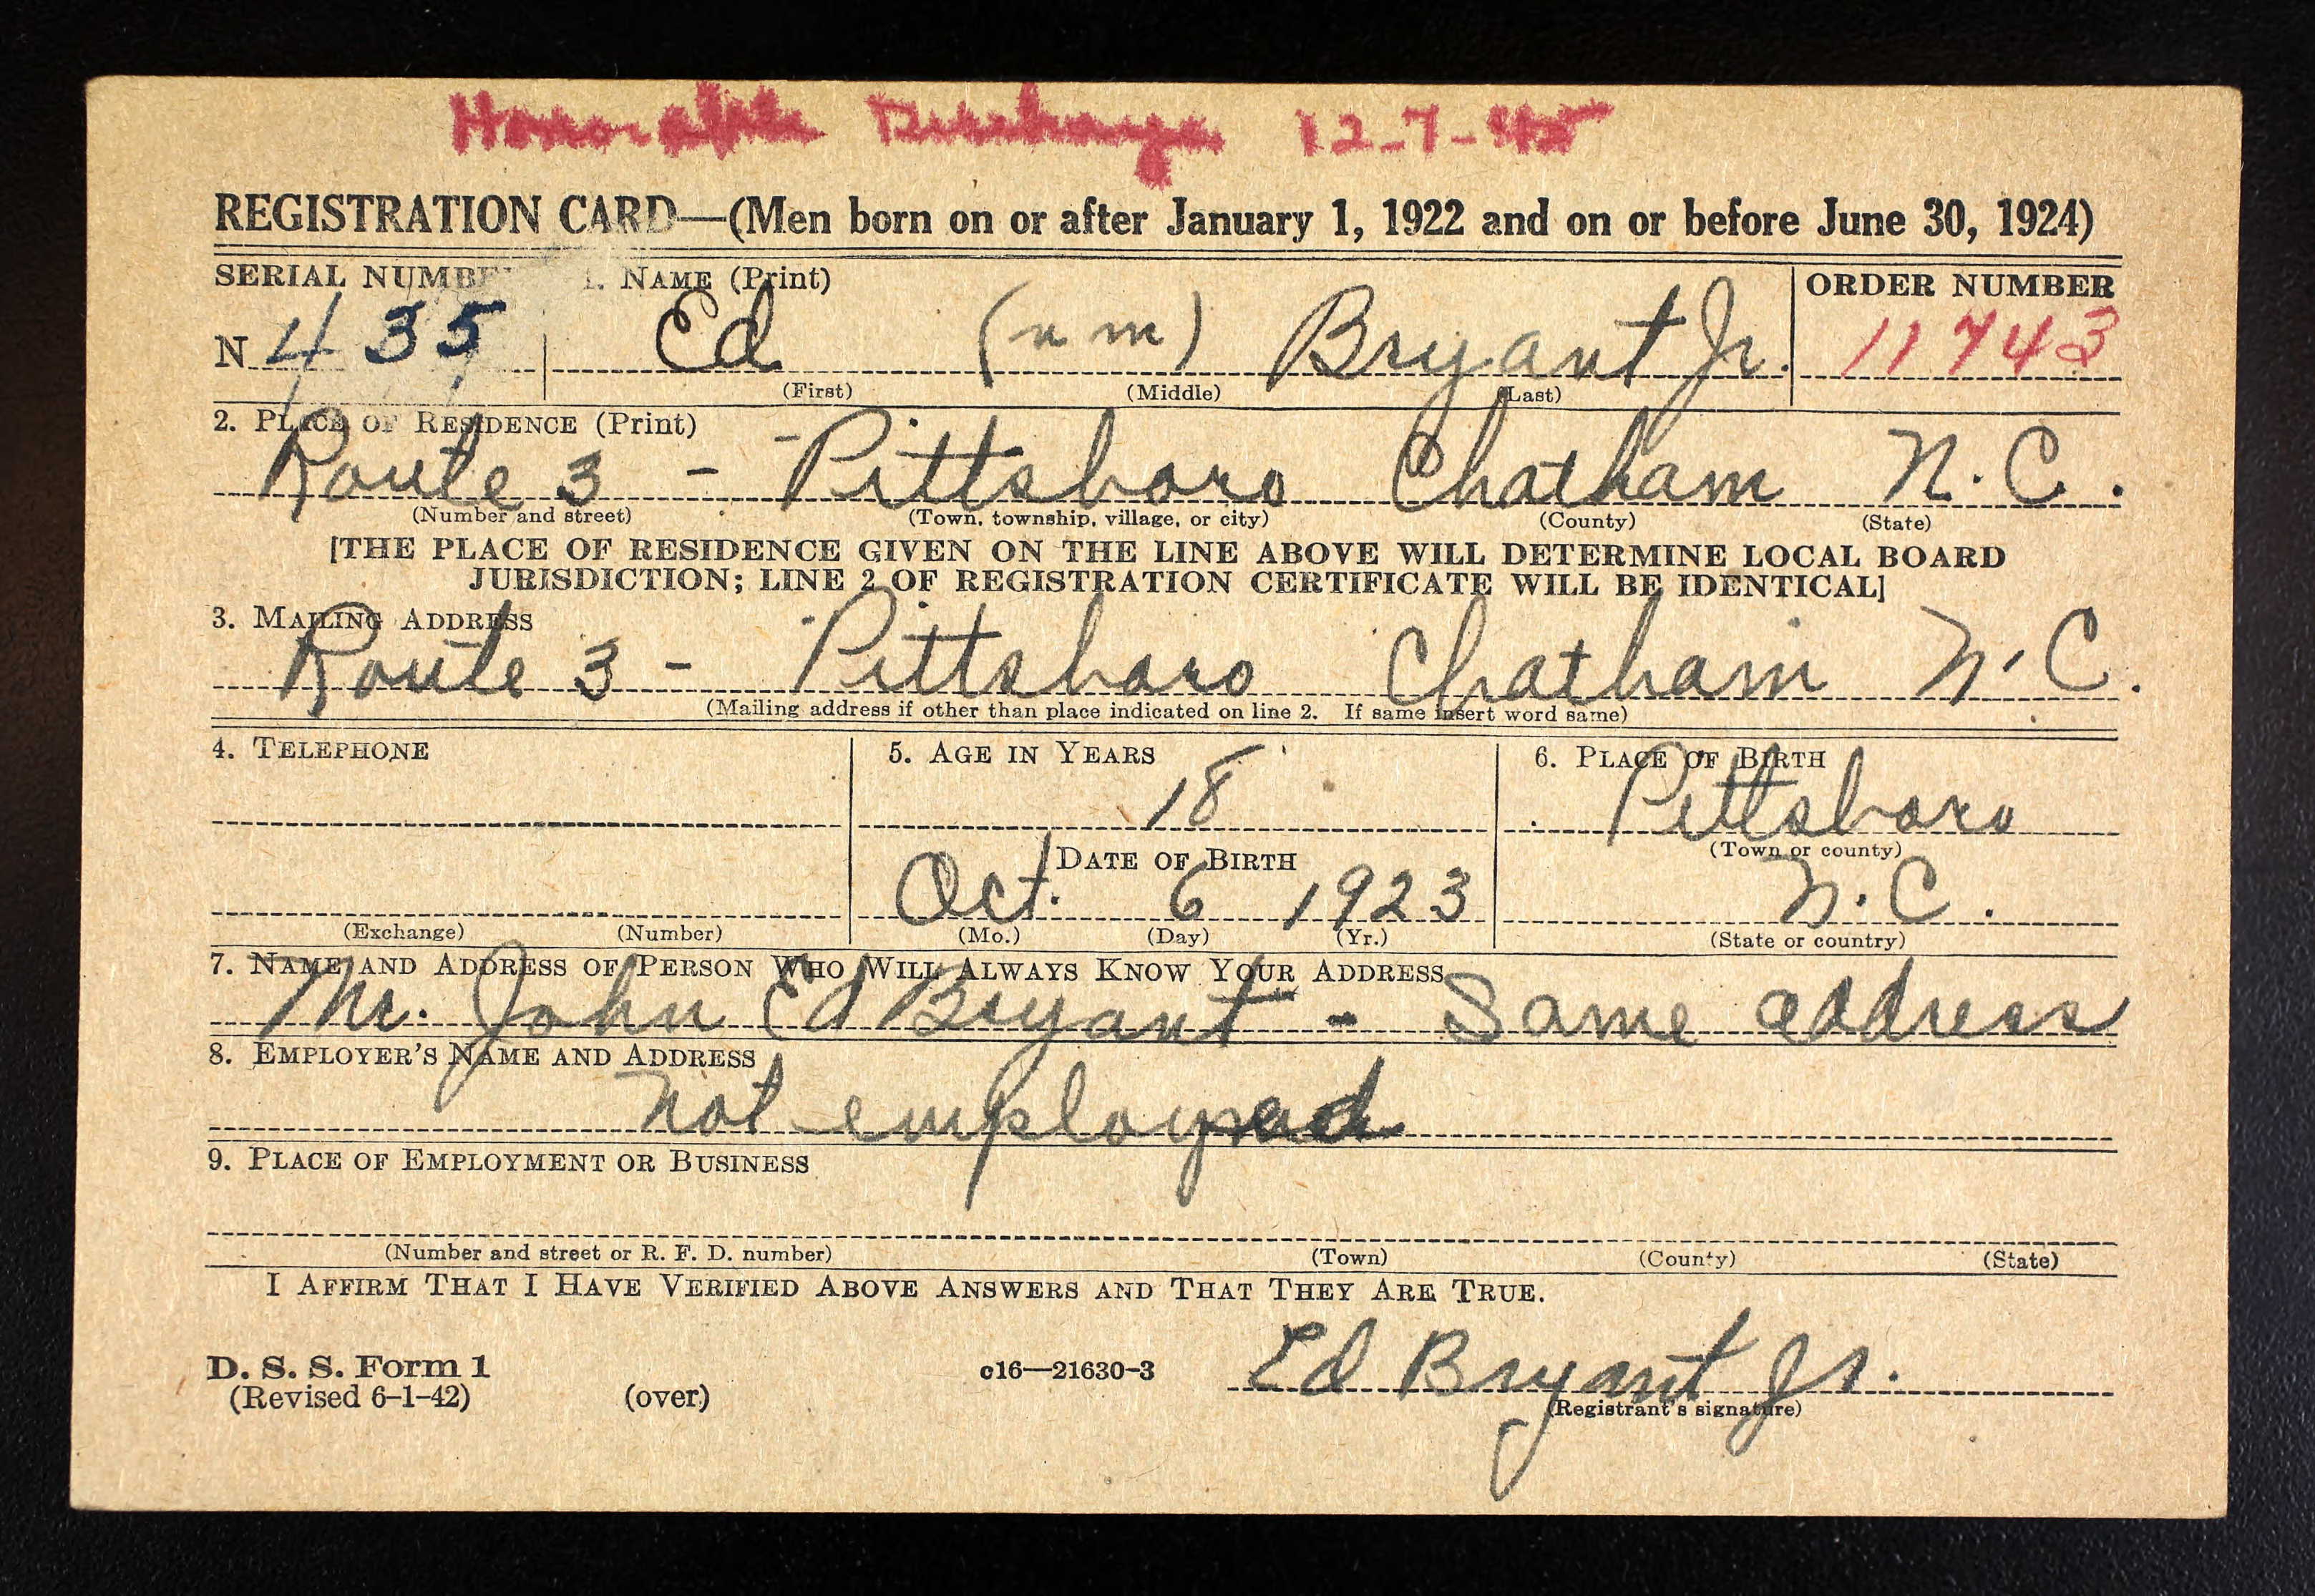 Honorable Discharge 12-7-45
REGISTRATION CARD—(Men born on or after January 1, 1922 and on or before June 30, 1924)
SERIAL NUMBER 1. NAME (Print) ORDER NUMBER
N 435 Ed (n m) Bryant Jr. 11743
(First) (Middle) (Last)
2. PLACE OF RESIDENCE (Print)
Route 3 - Pittsboro Chatham N.C.
(Number and street) (Town, township, village, or city) (County) (State)
[THE PLACE OF RESIDENCE GIVEN ON THE LINE ABOVE WILL DETERMINE LOCAL BOARD
JURISDICTION; LINE 2 OF REGISTRATION CERTIFICATE WILL BE IDENTICAL]
3. MAILING ADDRESS
Route 3 - Pittsboro Chatham N.C.
(Mailing address if other than place indicated on line 2. If same insert word same)
4. TELEPHONE 5. AGE IN YEARS 6. PLACE OF BIRTH
18 Pittsboro
DATE OF BIRTH (Town or county)
Oct. 6 1923 N.C.
(Exchange) (Number) (Mo.) (Day) (Yr.) (State or country)
7. NAME AND ADDRESS OF PERSON WHO WILL ALWAYS KNOW YOUR ADDRESS
Mr. John Ed Bryant - Same address
8. EMPLOYER'S NAME AND ADDRESS
not employed
9. PLACE OF EMPLOYMENT OR BUSINESS
(Number and street or R. F. D. number) (Town) (County) (State)
I AFFIRM THAT I HAVE VERIFIED ABOVE ANSWERS AND THAT THEY ARE TRUE.
D. S. S. Form 1 c16—21630-3 Ed Bryant Jr.
(Revised 6-1-42) (over) (Registrant's signature)